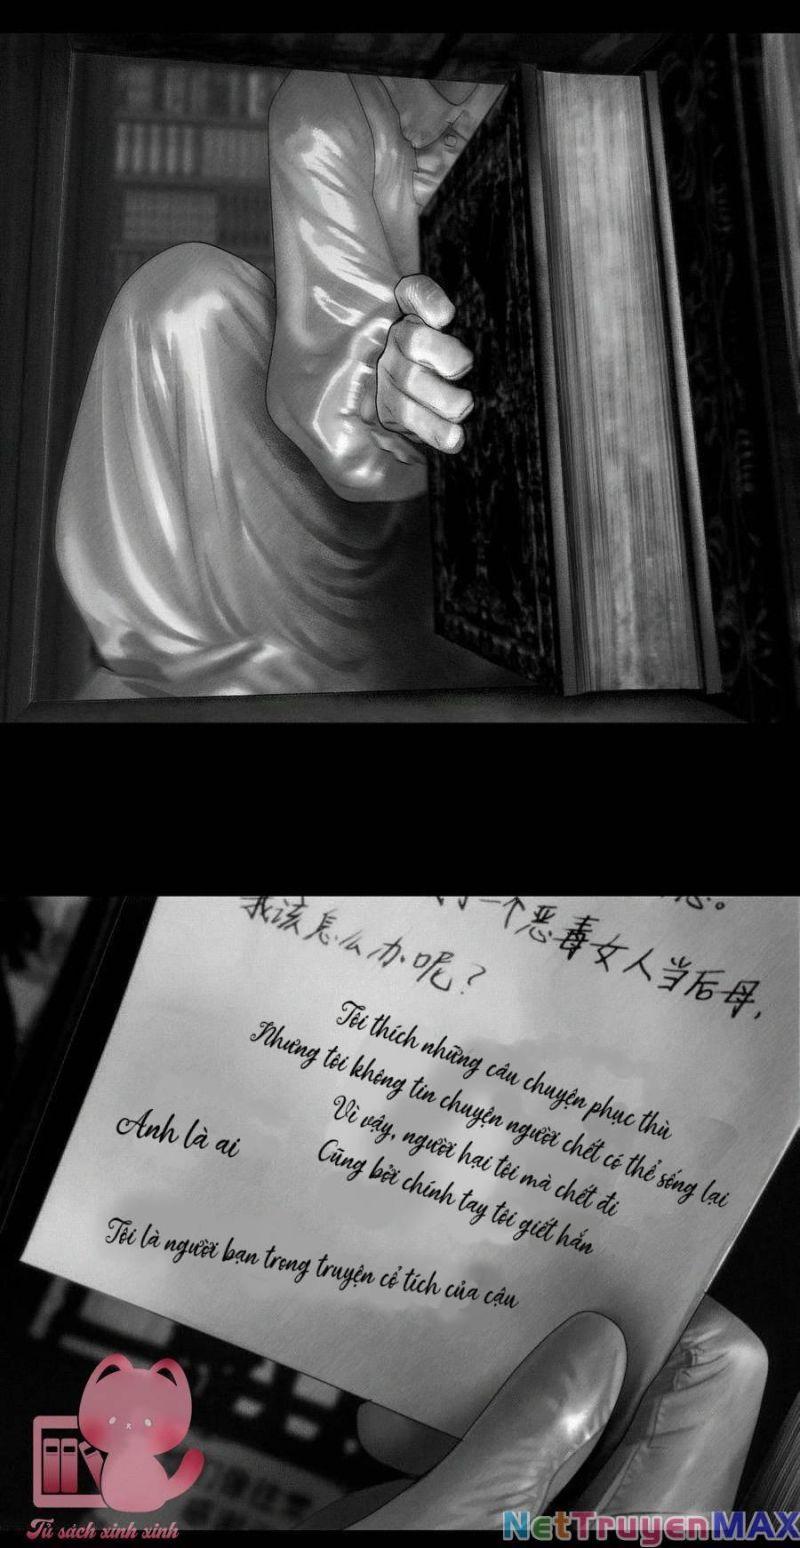 一个恶毒女人当后母,
我该怎么办呢?
Tôi thích những câu chuyện phục thù
Nhưng tôi không tin chuyện người chết có thể sống lại
Vì vậy, người hại tôi mà chết đi
Cũng bởi chính tay tôi giết hắn
Anh là ai
Tôi là người bạn trong truyện cổ tích của cậu
Tủ sách xinh xinh
NetTruyenMAX